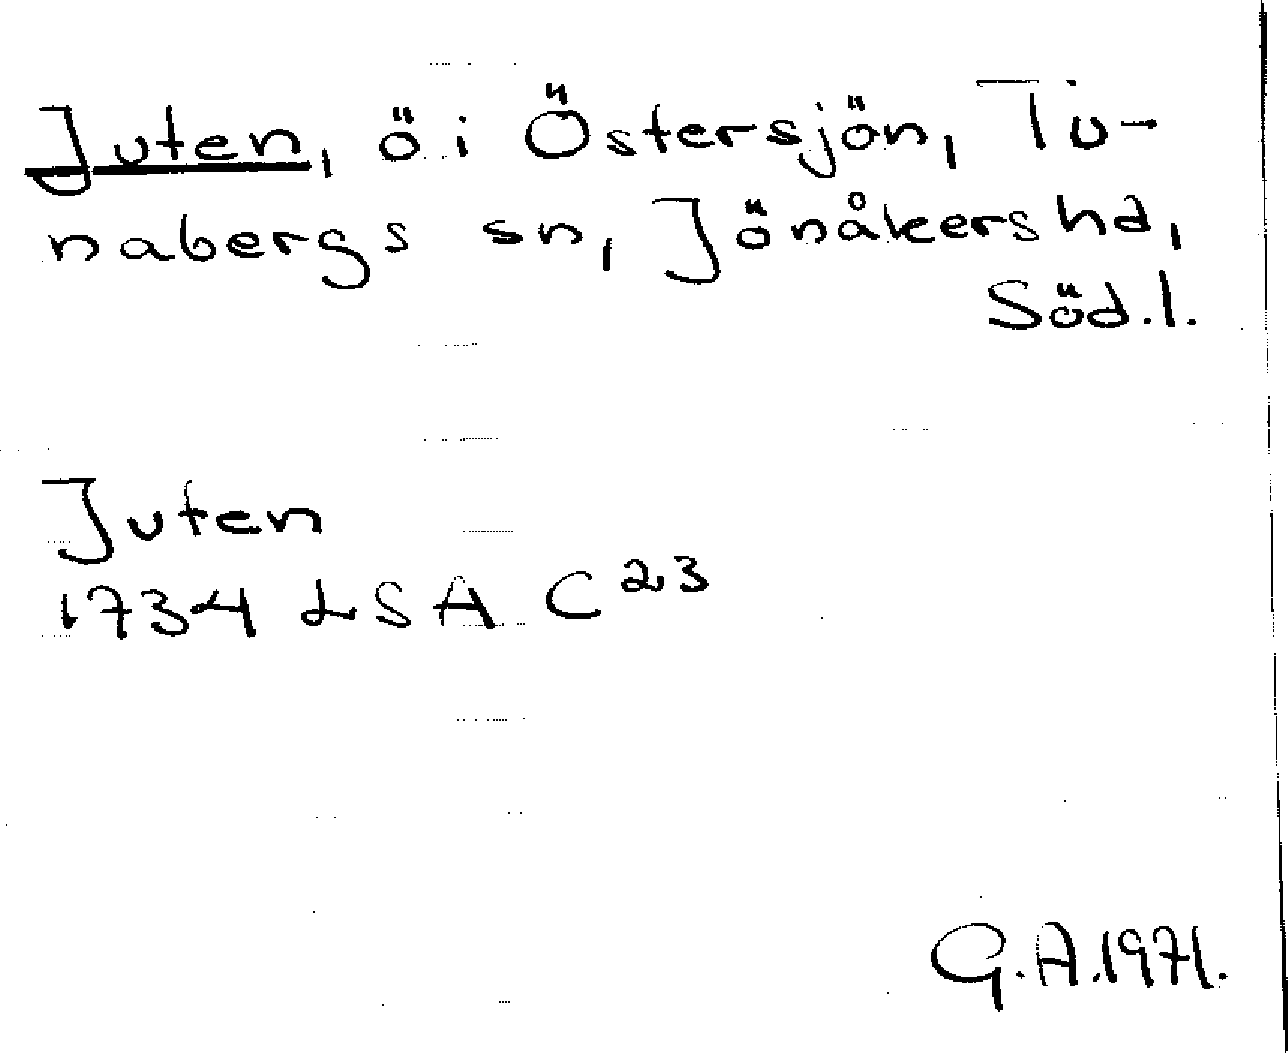 Juten, ö i Östersjön, Tu-
nabergs sn, Jönåkers hd,
Söd.l.
Juten
1734 LSA C23
G.A.1971.